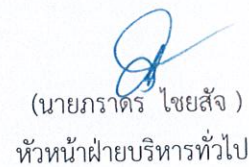 (นายภราดร ไชยสัจ )
หัวหน้าฝ่ายบริหารทั่วไป